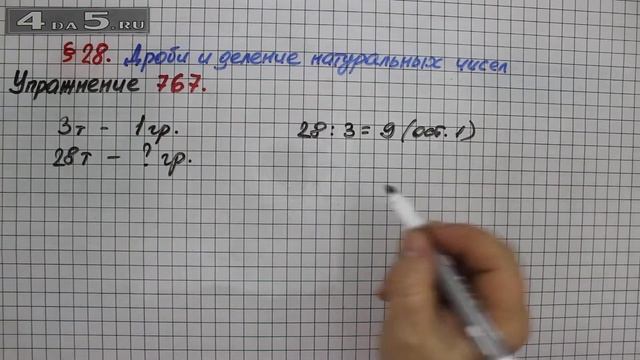 4 DA 5.RU
§ 28. Дроби и деление натуральных чисел
Упражнение 767.
3т - 1 гр.
28т - ? гр.
28 : 3 = 9 (ост. 1)